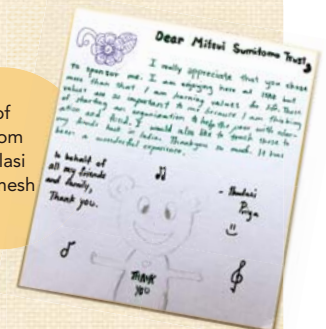 of
om
lasi
nesh
Dear Mitsui Sumitomo Trust,
I really appreciate that you chose
to sponsor me. I am enjoying here at ISB but
more than that I am learning values for life. These
values are so important to me because I am thinking
of starting an organization to help the poor with
and food. I would also like to teach these to
my friends back in India. Thankyou so much. It has
been a wonderful experience.
In behalf of
all my friends
and family,
Thank you.
- 
Priya
THANK
YOU